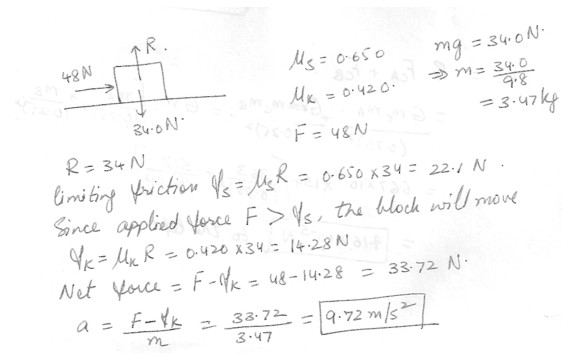 R.
48N
34.0 N.
μs = 0.650
μk = 0.420.
F = 48N
mg = 34.0 N.
⇒ m = 34.0/9.8
= 3.47 kg
R = 34 N
limiting friction fs = μsR = 0.650 x 34 = 22.1 N.
Since applied force F > fs, the block will move
fk = μkR = 0.420 x 34 = 14.28 N
Net force = F - fk = 48 - 14.28 = 33.72 N.
a = F - fk/m = 33.72/3.47 = 9.72 m/s²